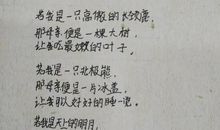 若我是一只高傲的长颈鹿，
那母亲便是一棵大树，
让我吃最嫩的叶子，
若我是一只北极熊，
那母亲便是一片冰盖，
让我可以好好的睡一觉。
若我是天上的明月，